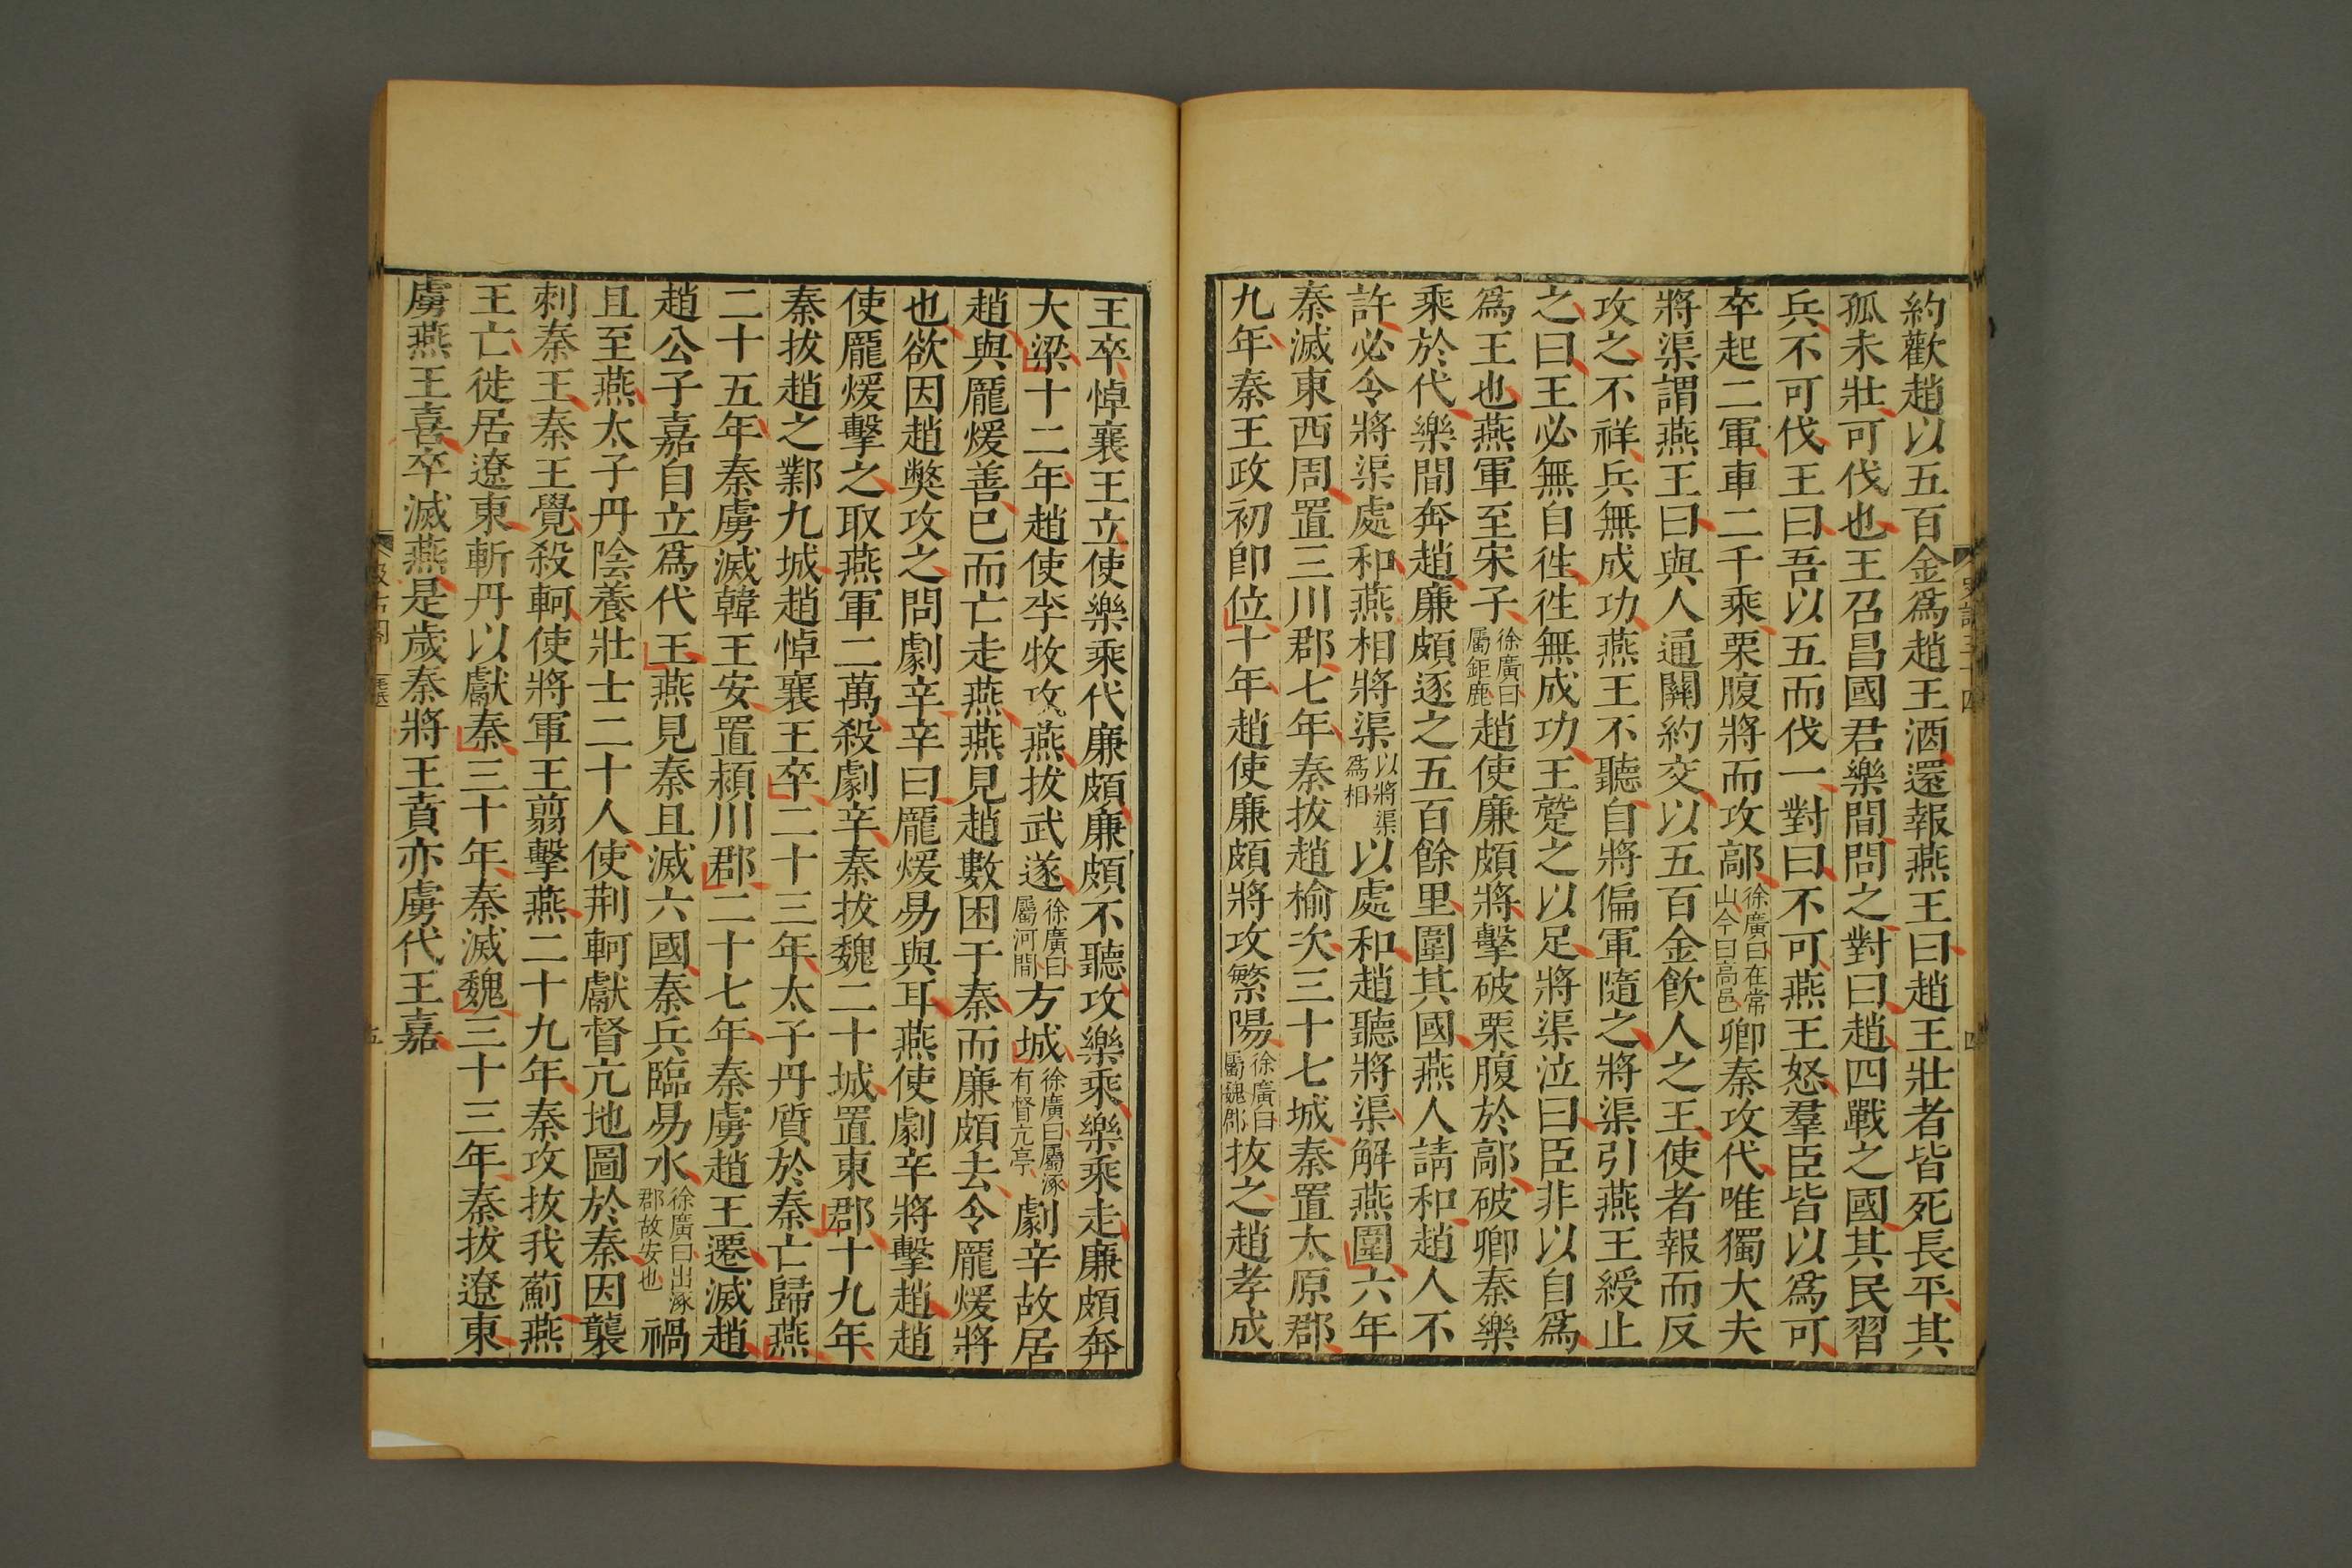 約歡趙以五百金爲趙王酒還報燕王曰趙王壯者皆死長平其
孤未壯可伐也王召昌國君樂間問之對曰趙四戰之國其民習
兵不可伐王曰吾以五而伐一對曰不可燕王怒羣臣皆以爲可
卒起二軍車二千乘栗腹將而攻鄗徐廣曰在常山今曰高邑卿秦攻代唯獨大夫
將渠謂燕王曰與人通關約交以五百金飮人之王使者報而反
攻之不祥兵無成功燕王不聽自將偏軍隨之將渠引燕王綬止
之曰王必無自徃徃無成功王蹵之以足將渠泣曰臣非以自爲
爲王也燕軍至宋子徐廣曰屬鉅鹿趙使廉頗將擊破栗腹於鄗破卿秦樂
乘於代樂間奔趙廉頗逐之五百餘里圍其國燕人請和趙人不
許必令將渠處和燕相將渠以將渠爲相以處和趙聽將渠解燕圍六年
秦滅東西周置三川郡七年秦拔趙榆次三十七城秦置太原郡
九年秦王政初卽位十年趙使廉頗將攻繁陽徐廣曰屬魏郡拔之趙孝成
王卒悼襄王立使樂乘代廉頗廉頗不聽攻樂乘樂乘走廉頗奔
大梁十二年趙使李牧攻燕拔武遂徐廣曰屬河間方城徐廣曰屬涿有督亢亭劇辛故居
趙與龎煖善已而亡走燕燕見趙數困于秦而廉頗去令龎煖將
也欲因趙獘攻之問劇辛辛曰龎煖易與耳燕使劇辛將擊趙趙
使龎煖擊之取燕軍二萬殺劇辛秦拔魏二十城置東郡十九年
秦拔趙之鄴九城趙悼襄王卒二十三年太子丹質於秦亡歸燕
二十五年秦虜滅韓王安置潁川郡二十七年秦虜趙王遷滅趙
趙公子嘉自立爲代王燕見秦且滅六國秦兵臨易水徐廣曰出涿郡故安也禍
且至燕太子丹陰養壯士二十人使荆軻獻督亢地圖於秦因襲
刺秦王秦王覺殺軻使將軍王翦擊燕二十九年秦攻拔我薊燕
王亡徙居遼東斬丹以獻秦三十年秦滅魏三十三年秦拔遼東
虜燕王喜卒滅燕是歲秦將王賁亦虜代王嘉